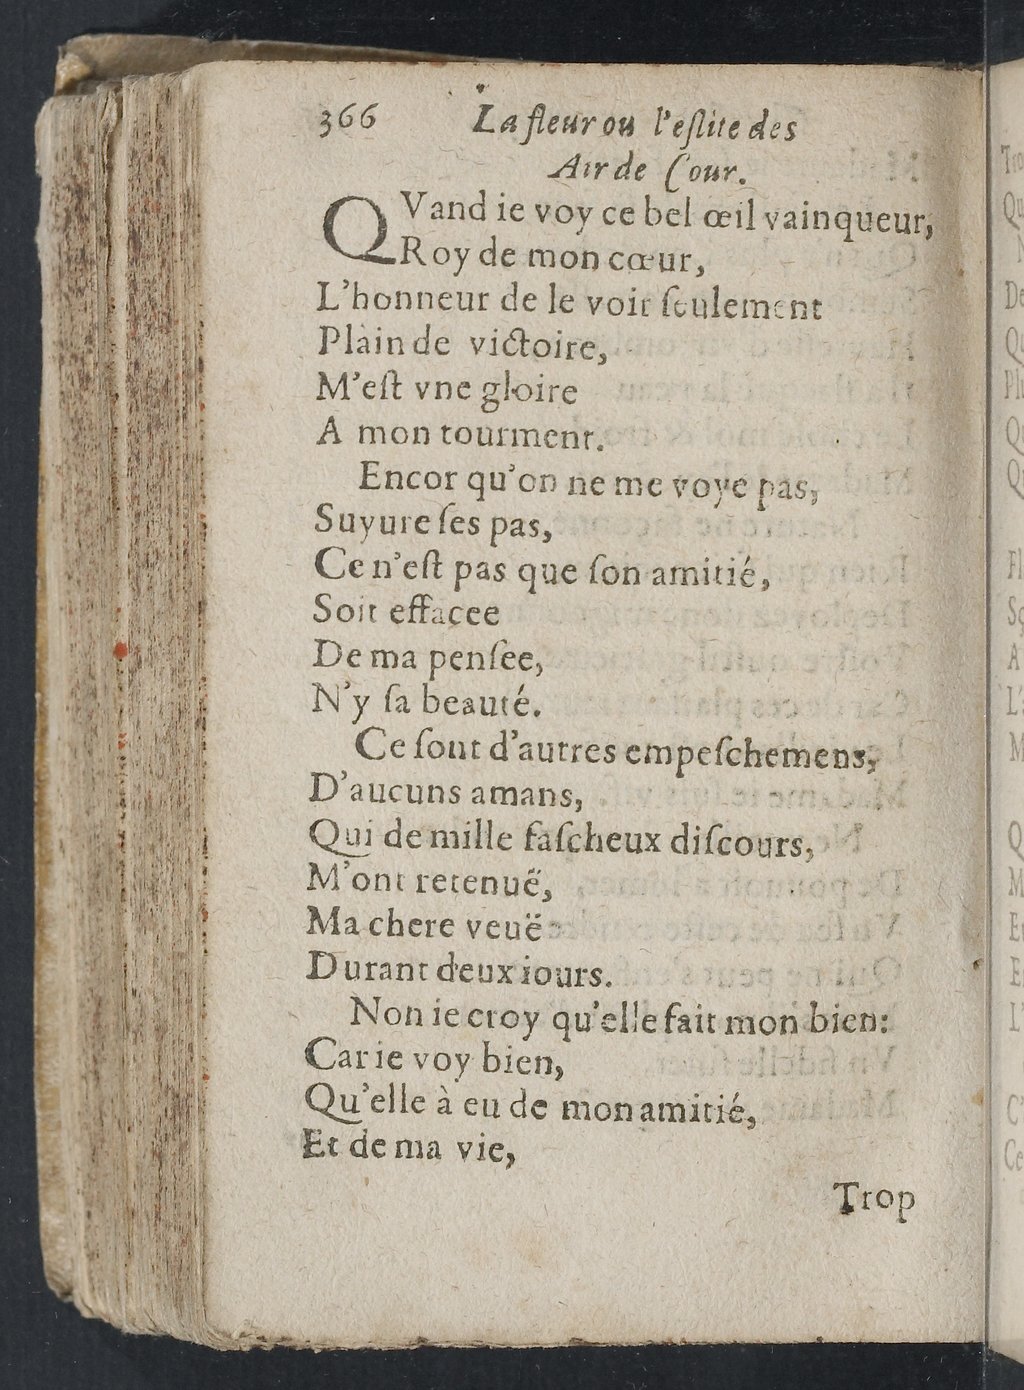 366 La fleur ou l'eſlite des
Air de Cour.
QVand ie voy ce bel œil vainqueur,
Roy de mon cœur,
L'honneur de le voir ſeulement
Plain de victoire,
M'eſt vne gloire
A mon tourment.
Encor qu'on ne me voye pas,
Suyure ſes pas,
Ce n'eſt pas que ſon amitié,
Soit effacee
De ma penſee,
N'y ſa beauté.
Ce ſont d'autres empeſchemens,
D'aucuns amans,
Qui de mille faſcheux diſcours,
M'ont retenuë,
Ma chere veuë
Durant deux iours.
Non ie croy qu'elle fait mon bien:
Car ie voy bien,
Qu'elle à eu de mon amitié,
Et de ma vie,
Trop